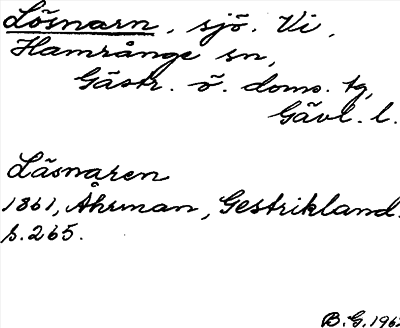 Lösnarn, sjö. Vi,
Hamrånge sn,
Gästr. ö. doms. tg,
Gävl. l.
Läsnaren
1861, Åhrman, Gestrikland.
s. 265.
B.G. 196